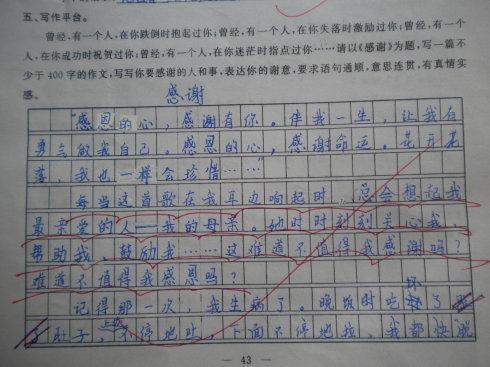 五、写作平台。
曾经，有一个人，在你跌倒时抱起过你；曾经，有一个人，在你失落时激励过你；曾经，有一个
人，在你成功时祝贺过你；曾经，有一个人，在你迷茫时指点过你……请以《感谢》为题，写一篇不
少于 400 字的作文，写写你要感谢的人和事，表达你的谢意，要求语句通顺，意思连贯，有真情实
感。
感谢
“感恩的心，感谢有你。伴我一生，让我有
勇气做我自己。感恩的心，感谢命运。花开花
落，我也一样会珍惜……”
每当这首歌在我耳边响起时，总会想起我
最亲爱的人——我的母亲。她时时刻刻关心我、
帮助我、鼓励我……这难道不值得我感谢吗？
难道不值得我感恩吗？
记得那一次，我生病了。晚饭时吃坏了
肚子，上面不停地吐，下面不停地拉，我都快
— 43 —